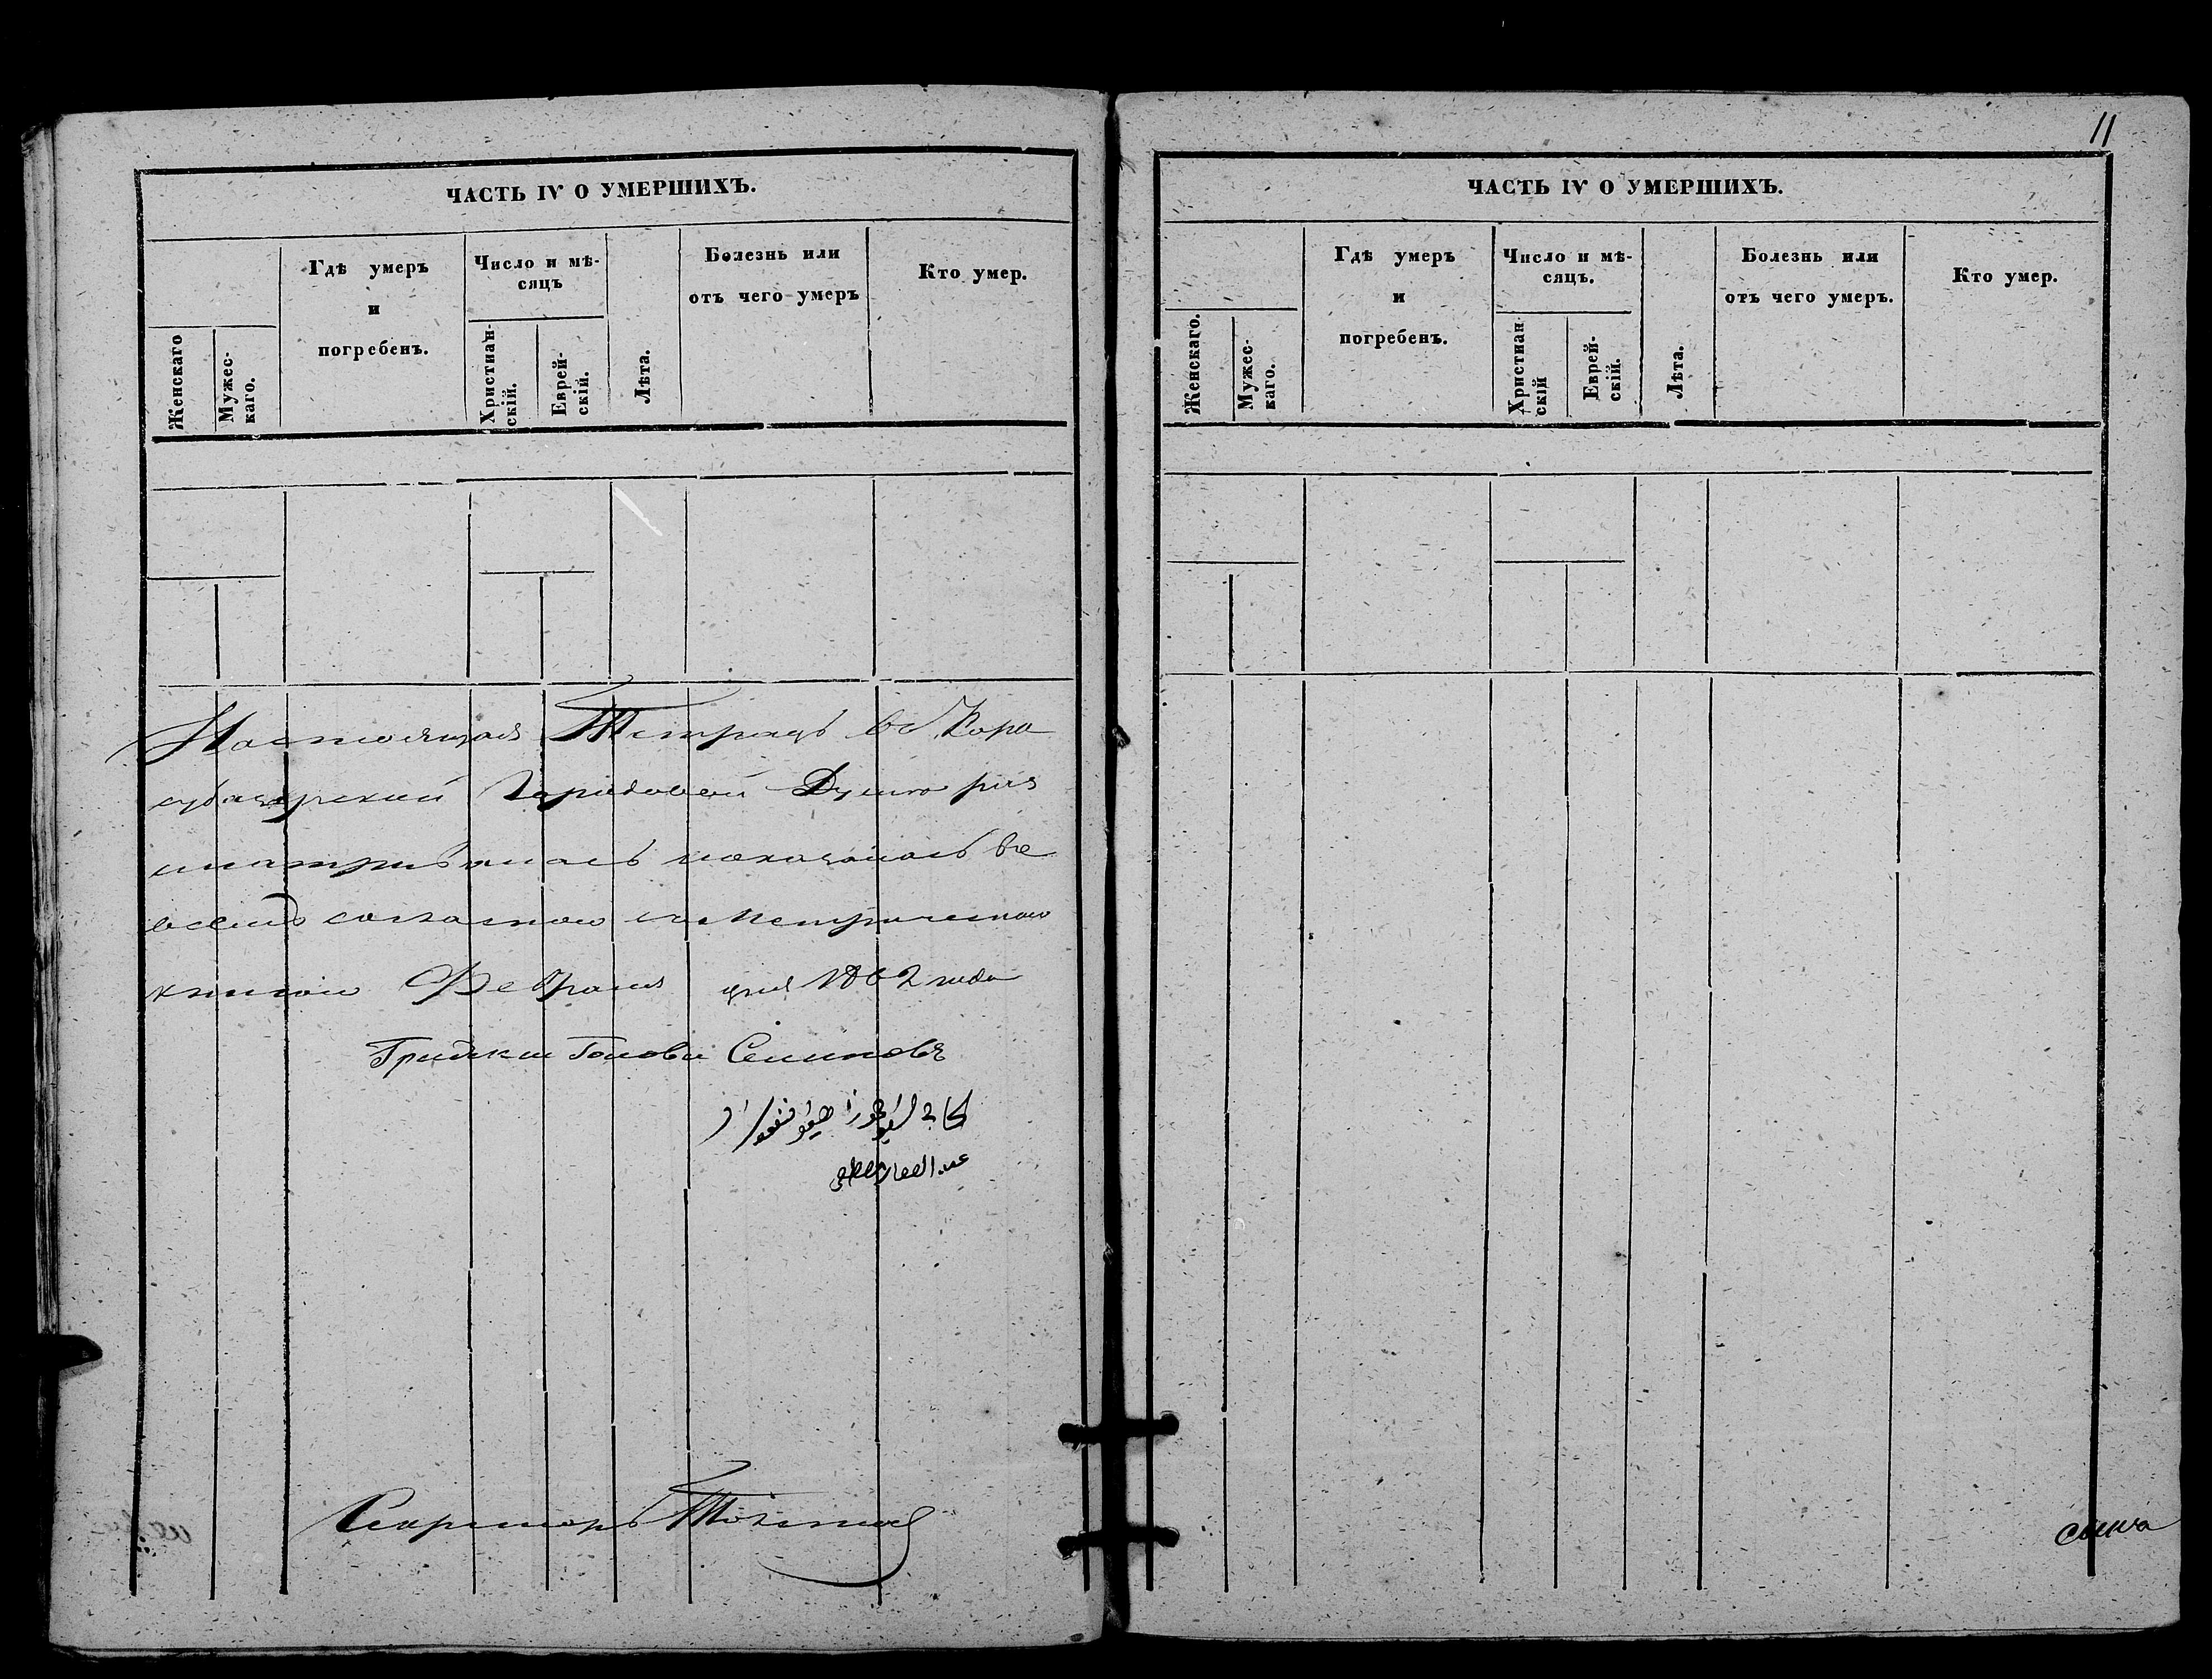 ЧАСТЬ IV О УМЕРШИХЪ.
Женскаго
Мужес-
каго.
Гдѣ умеръ
и
погребенъ.
Число и мѣ-
сяцъ
Христиан-
скій.
Еврей-
скій.
Лѣта.
Болезнь или
отъ чего умеръ
Кто умер.
Настоящая Тетрадь въ Кара
субазарской Городовой Думе раз
сматривалась и оказалась во
всемъ согласною съ Метрическою
книгою Февраля дня 1862 года
Градскии Голова Семеновъ
Секретарь
11
ЧАСТЬ IV О УМЕРШИХЪ.
Женскаго.
Мужес-
каго.
Гдѣ умеръ
и
погребенъ.
Число и мѣ-
сяцъ.
Христиан-
скій
Еврей-
скій.
Лѣта.
Болезнь или
отъ чего умеръ.
Кто умер.